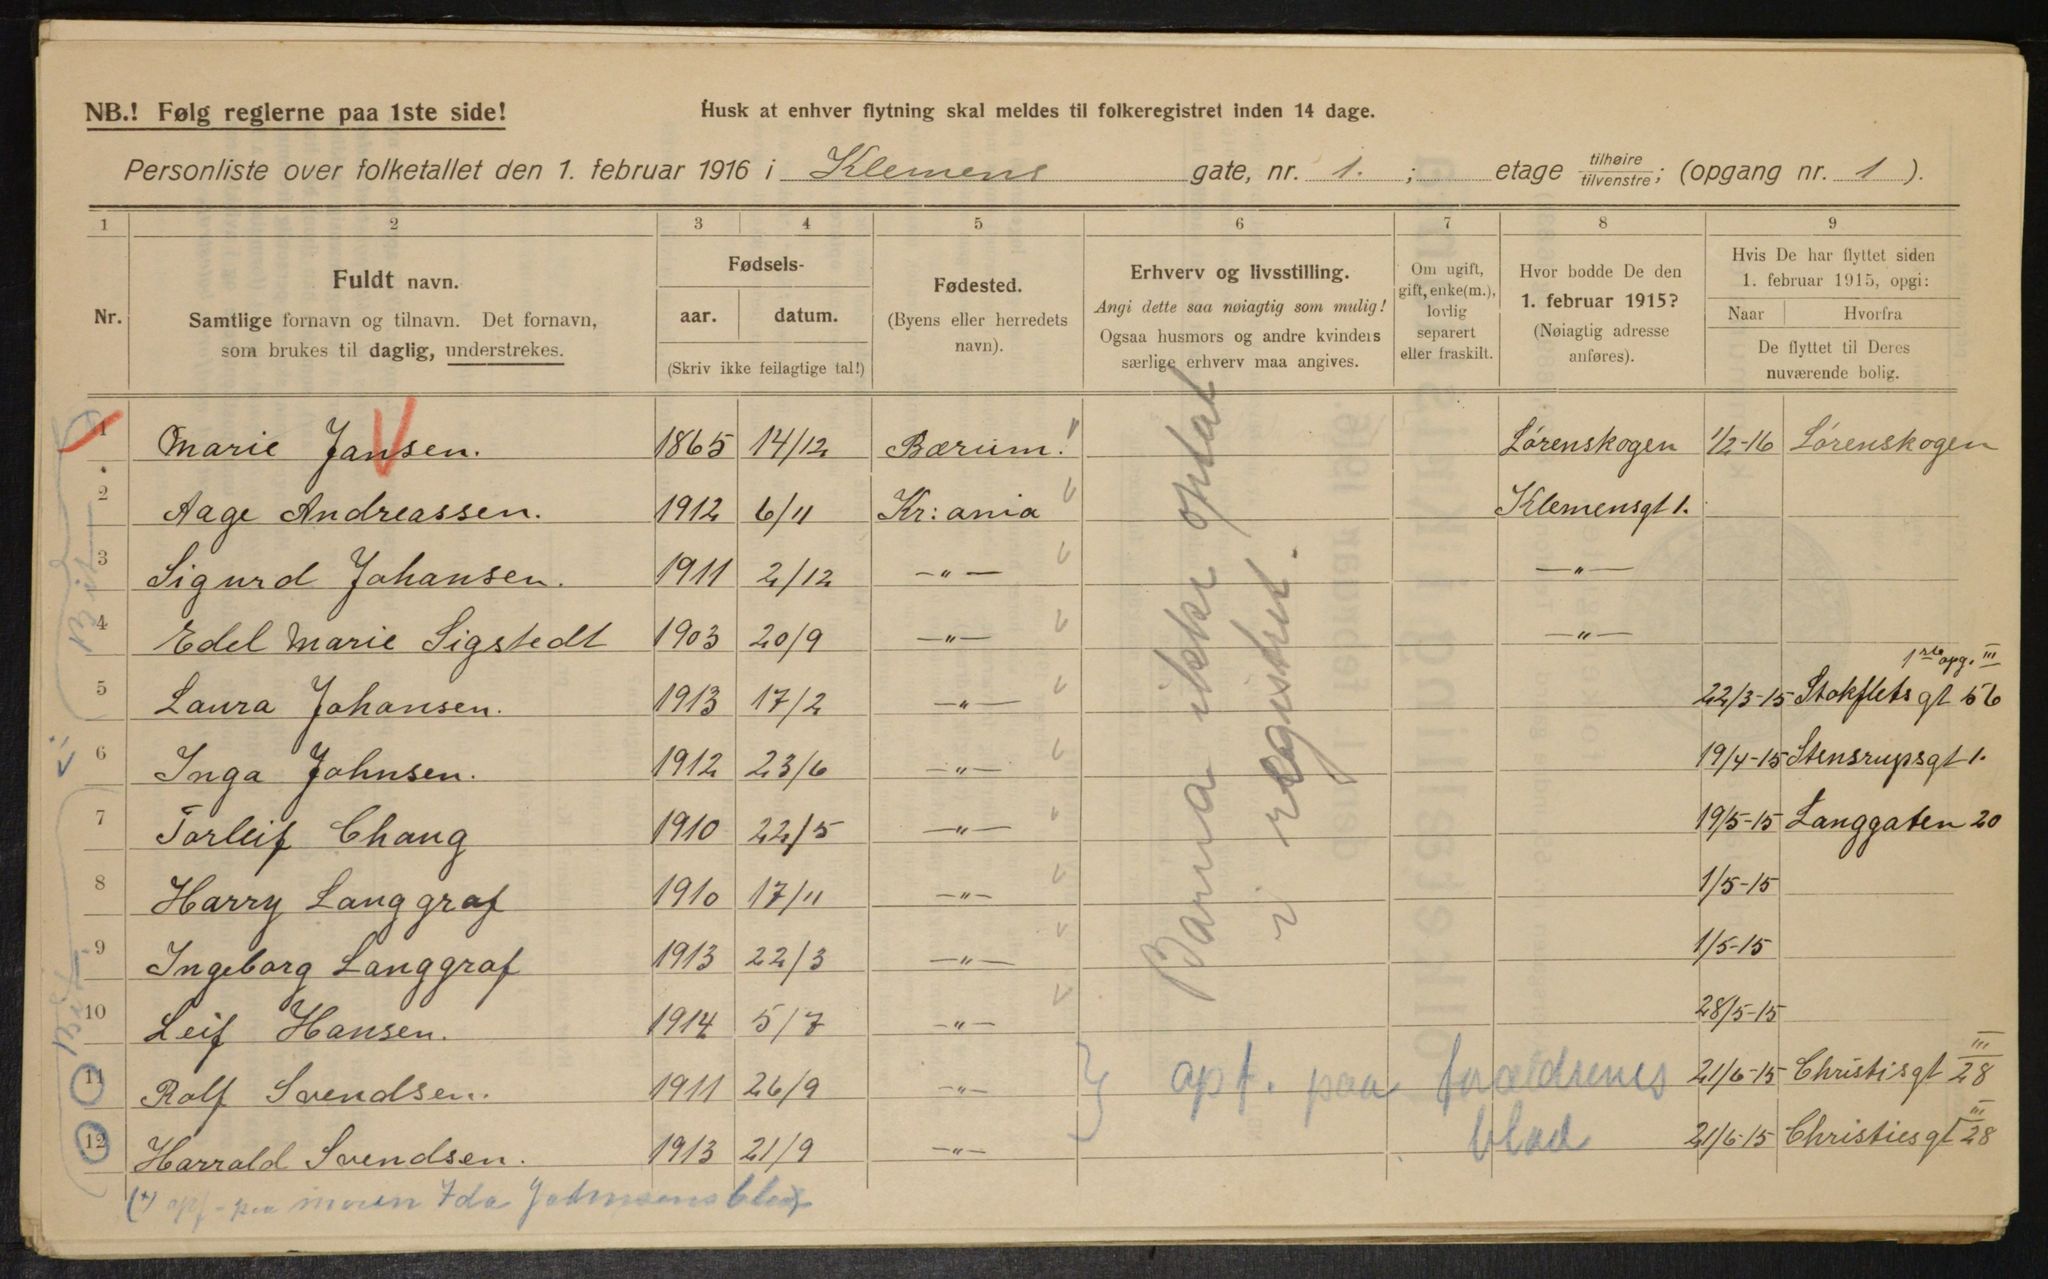 NB.! Følg reglerne paa 1ste side!
Husk at enhver flytning skal meldes til folkeregistret inden 14 dage.
Personliste over folketallet den 1. februar 1916 i Klemens gate, nr. 1. ; etage tilhøire/tilvenstre; (opgang nr. 1).
1 2 3 4 5 6 7 8 9
Nr.
Fuldt navn.
Samtlige fornavn og tilnavn. Det fornavn,
som brukes til daglig, understrekes.
Fødsels-
aar. datum.
(Skriv ikke feilagtige tal!)
Fødested.
(Byens eller herredets
navn).
Erhverv og livsstilling.
Angi dette saa nøiagtig som mulig!
Ogsaa husmors og andre kvinders
særlige erhverv maa angives.
Om ugift,
gift, enke(m.),
lovlig
separert
eller fraskilt.
Hvor bodde De den
1. februar 1915?
(Nøiagtig adresse
anføres).
Hvis De har flyttet siden
1. februar 1915, opgi:
Naar Hvorfra
De flyttet til Deres
nuværende bolig.
1 Marie Jansen. 1865 14/12 Bærum. Lørenskogen 1/2-16 Lørenskogen
2 Aage Andreassen. 1912 6/11 Kr:ania Klemensgt 1.
3 Sigurd Johansen. 1911 2/12 —"— —"—
4 Edel Marie Sigstedt 1903 20/9 —"— —"—
1ste opg. III
5 Laura Johansen. 1913 17/2 —"— 22/3-15 Stokfletsgt 56
6 Inga Johnsen. 1912 23/6 —"— 19/4-15 Stensrupsgt 1.
7 Torleif Chang 1910 22/5 —"— 19/5-15 Langgaten 20
8 Harry Langgraf 1910 17/11 —"— 1/5-15
9 Ingeborg Langgraf 1913 22/3 —"— 1/5-15
10 Leif Hansen. 1914 5/7 —"— 28/5-15
11 Rolf Svendsen. 1911 26/9 —"— 21/6-15 Christisgt III 28
12 Harrald Svendsen. 1913 21/9 —"— 21/6-15 Christiesgt III 28
Barna ikke optat
i registret.
opf. paa forældrenes
blad
opf - paa moren Ida Johnsens blad